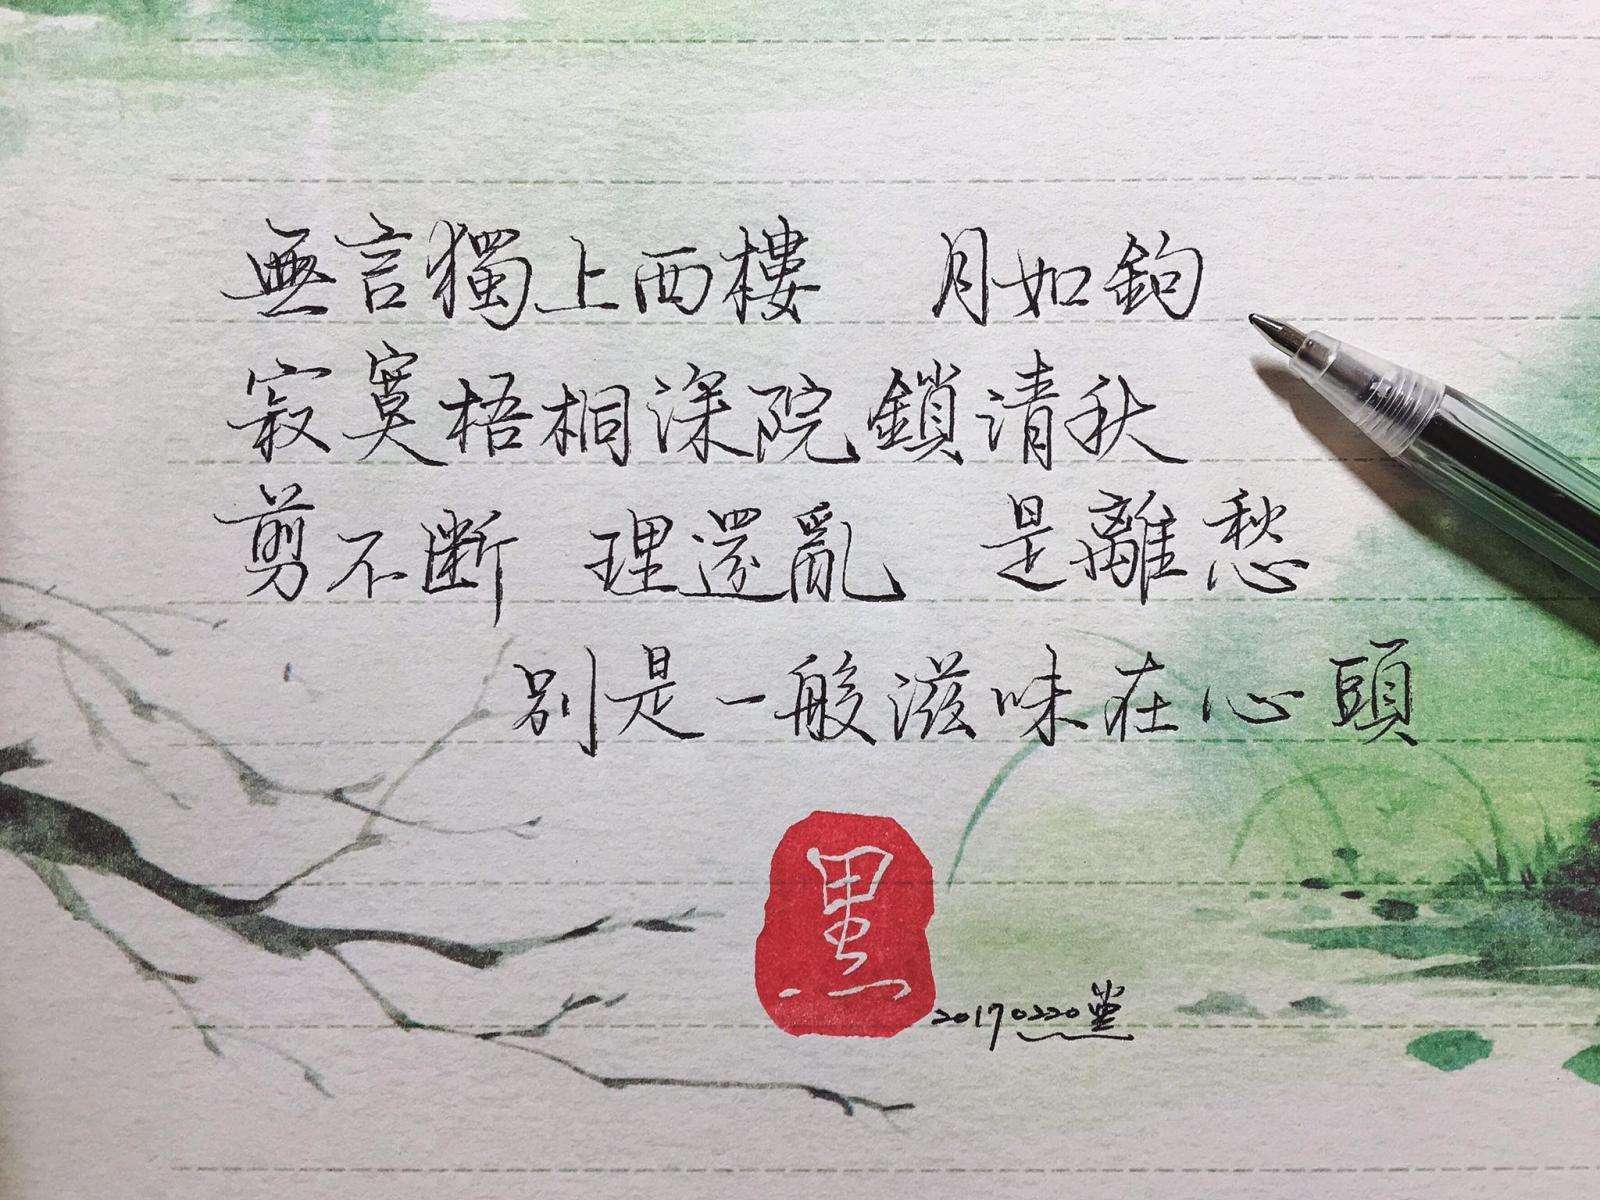 無言獨上西樓 月如鉤
寂寞梧桐深院鎖清秋
剪不斷 理還亂 是離愁
別是一般滋味在心頭
黑
20170220